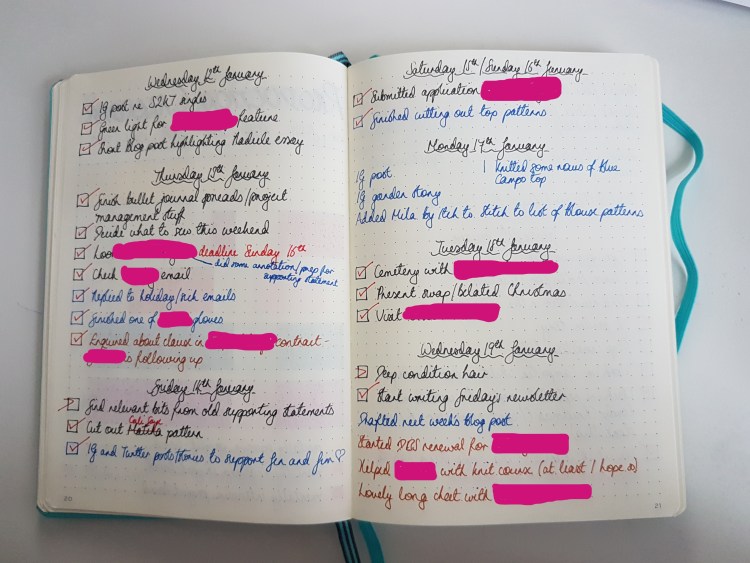 Wednesday 12th January
Ig post re S2K7 singles
Green light for feature
Boost blog post highlighting Radicle essay
Thursday 13th January
Finish bullet journal spreads/project
management stuff
Decide what to sew this weekend
deadline Sunday 16th
did some annotation/prep for
supporting statement
Check email
Replied to holiday/sick emails
Finished one of gloves
Enquired about clause in contract -
is following up
Friday 14th January
Find relevant bits from old supporting statements
Cut out pattern
Ig and Twitter posts/stories to support fin and fin ♡
20
Saturday 15th/Sunday 16th January
Submitted application
Finished cutting out top patterns
Monday 17th January
Ig post
Ig garden story
Knitted some rows of blue
Campo top
Added Mila by Itch to Stitch to list of blouse patterns
Tuesday 18th January
Cemetery with
Present swap/belated Christmas
Visit
Wednesday 19th January
Deep condition hair
Start writing Friday's newsletter
Drafted next week's blog post
Started DBS renewal for
Helped with knit course (at least I hope so)
Lovely long chat with
21